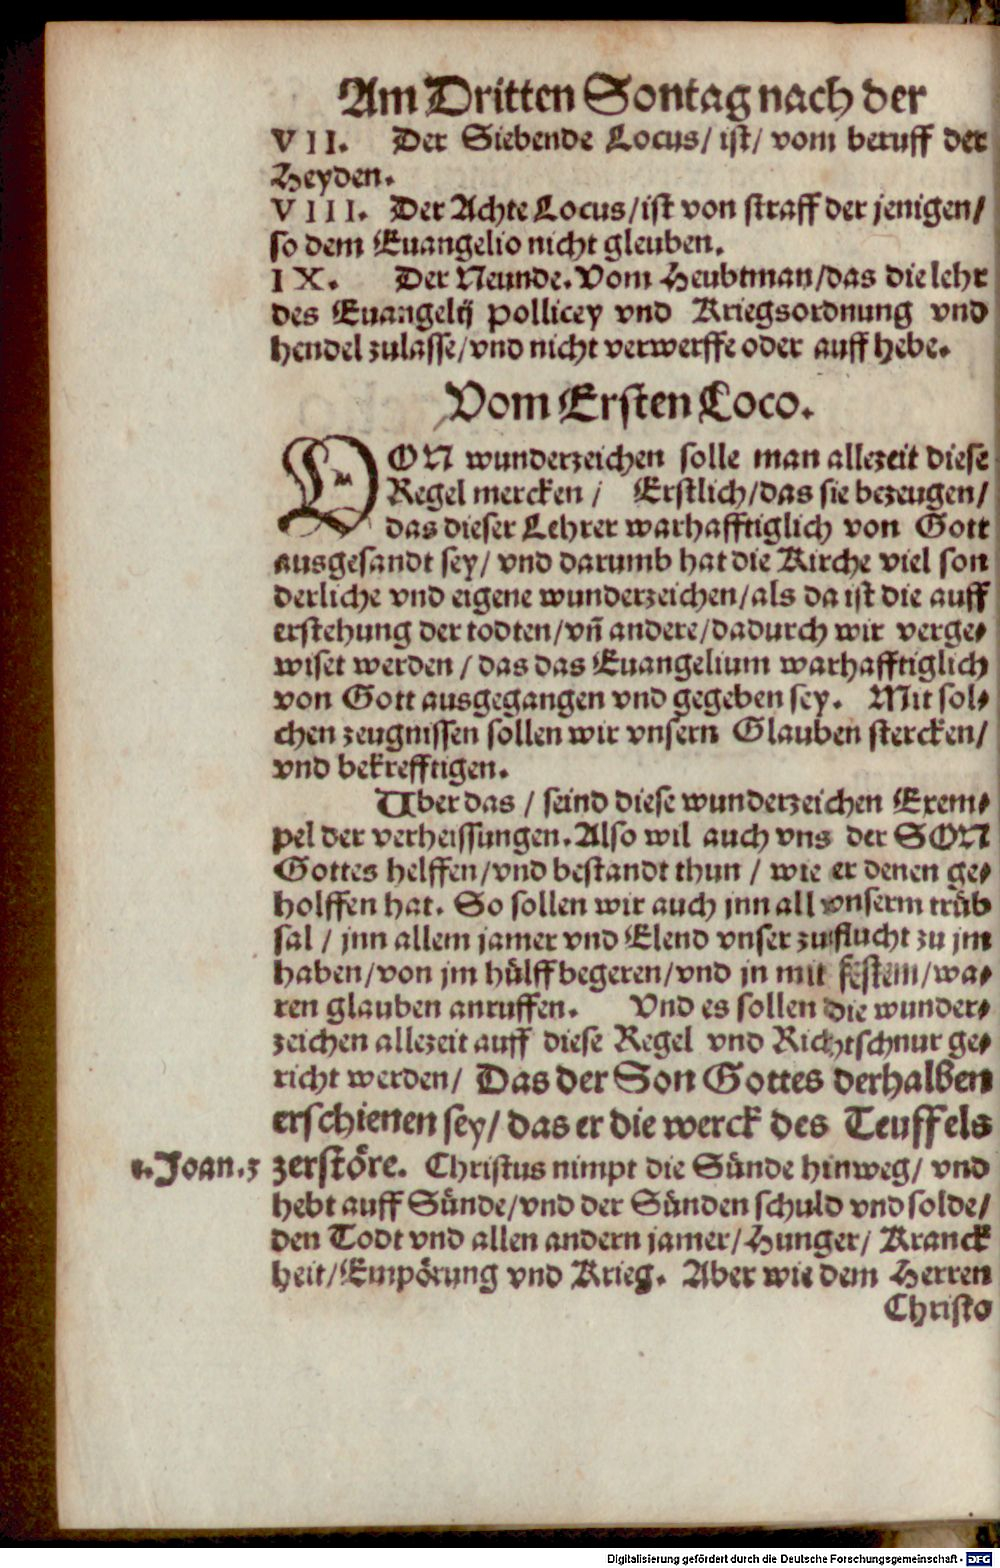 Am Dritten Sontag nach der
VII. Der Siebende Locus/ ist/ vom beruff der
Heyden.
VIII. Der Achte Locus/ist von straff der jenigen/
so dem Euangelio nicht gleuben.
IX. Der Neunde. Vom Heubtman/das die lehr
des Euangelij pollicey vnd Kriegsordnung vnd
hendel zulasse/vnd nicht verwerffe oder auff hebe.
Vom Ersten Loco.
VON wunderzeichen solle man allezeit diese
Regel mercken / Erstlich/das sie bezeugen/
das dieser Lehrer warhafftiglich von Gott
ausgesandt sey/ vnd darumb hat die Kirche viel son
derliche vnd eigene wunderzeichen/als da ist die auff
erstehung der todten/vñ andere/dadurch wir verge⸗
wiset werden / das das Euangelium warhafftiglich
von Gott ausgegangen vnd gegeben sey. Mit sol⸗
chen zeugnissen sollen wir vnsern Glauben stercken/
vnd bekrefftigen.
Uber das / seind diese wunderzeichen Exem⸗
pel der verheissungen. Also wil auch vns der SON
Gottes helffen/vnd bestandt thun / wie er denen ge⸗
holffen hat. So sollen wir auch jnn all vnserm trüb
sal / jnn allem jamer vnd Elend vnser zuflucht zu jm
haben/von jm hülff begeren/vnd jn mit festem/wa⸗
ren glauben anruffen. Vnd es sollen die wunder⸗
zeichen allezeit auff diese Regel vnd Richtschnur ge⸗
richt werden/ Das der Son Gottes derhalben
erschienen sey/ das er die werck des Teuffels
1. Joan. 3 zerstöre. Christus nimpt die Sünde hinweg/ vnd
hebt auff Sünde/vnd der Sünden schuld vnd solde/
den Todt vnd allen andern jamer/ Hunger/ Kranck
heit/Empörung vnd Krieg. Aber wie dem Herren
Christo
Digitalisierung gefördert durch die Deutsche Forschungsgemeinschaft - DFG